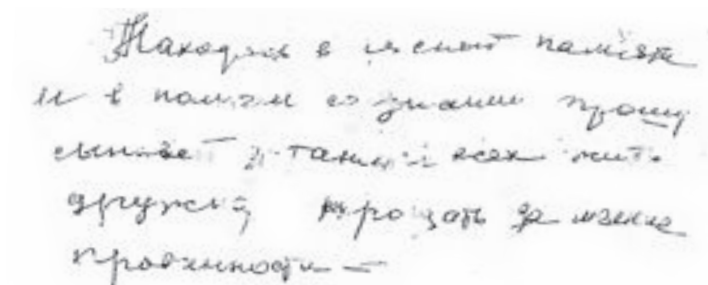 Находясь в ясной памяти
и в полном сознании прошу
сыновей и также всех жить
дружно, прощать за мелкие
провинности —